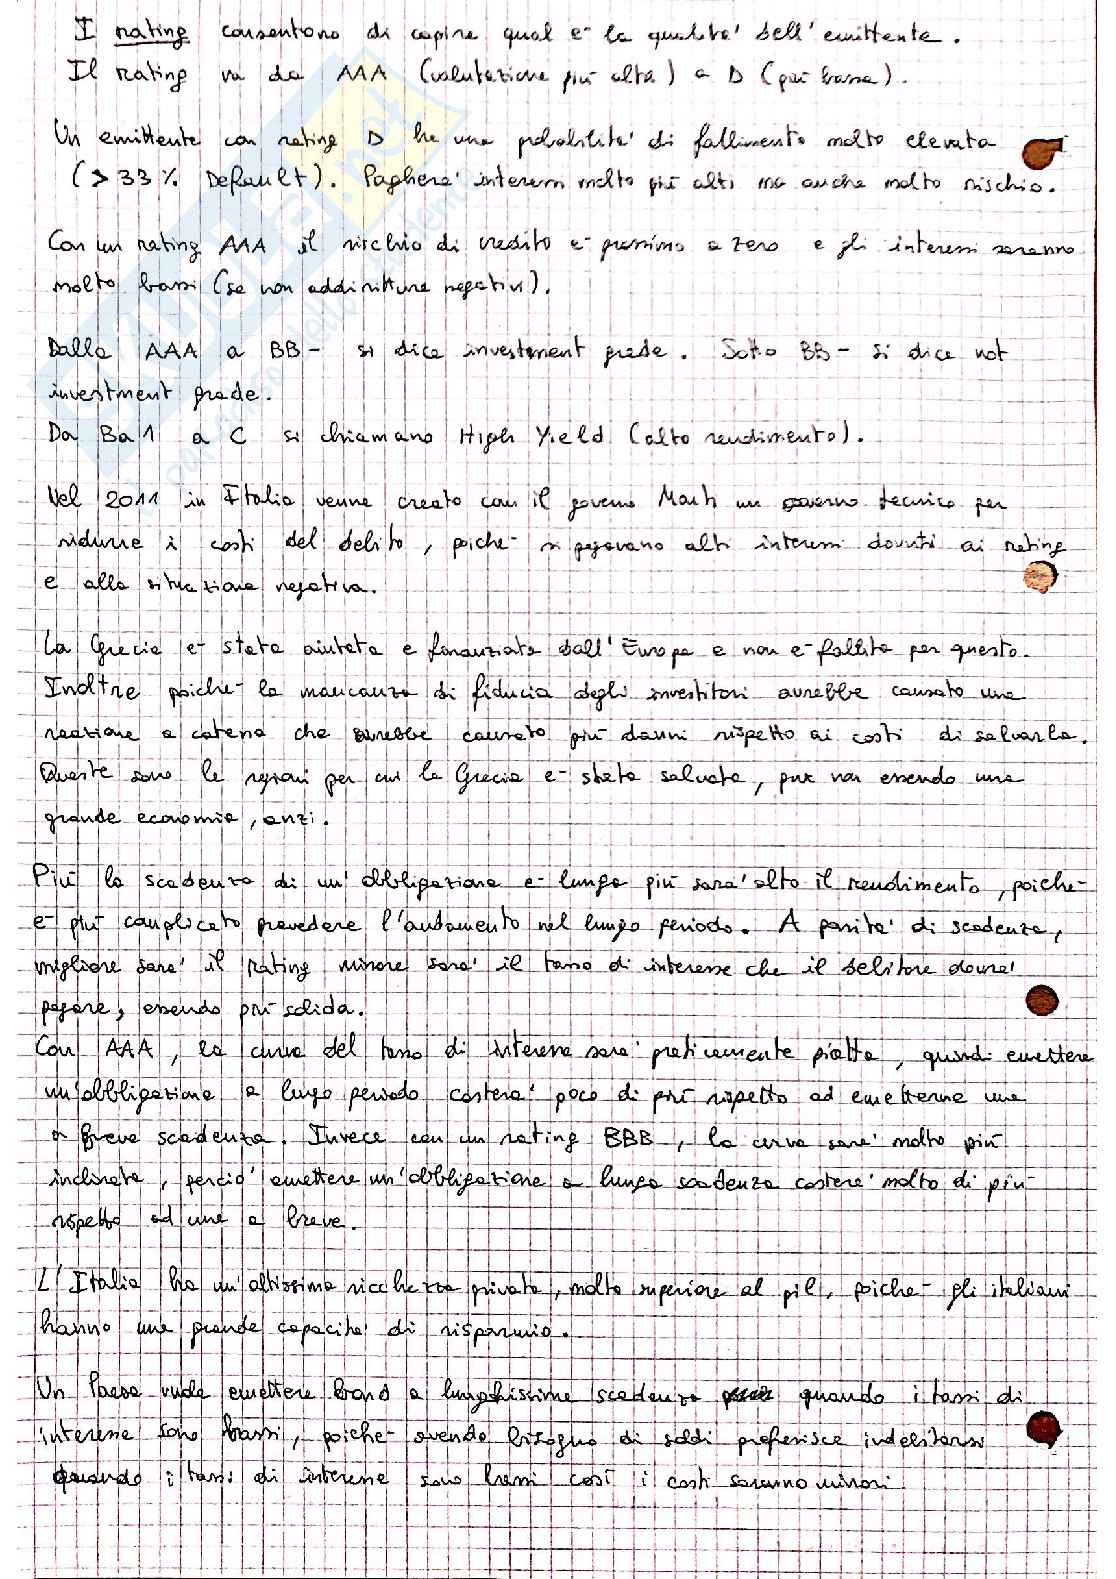 I rating consentono di capire qual è la qualità dell'emittente.
Il Rating va da AAA (valutazione più alta) a D (più bassa).
Un emittente con rating D ha una probabilità di fallimento molto elevata
(>33% Default). Pagherà interessi molto più alti ma anche molto rischio.
Con un rating AAA il rischio di credito è prossimo a zero e gli interessi saranno
molto bassi (se non addirittura negativi).
Dalla AAA a BB- si dice investment grade. Sotto BB- si dice not
investment grade.
Da Ba1 a C si chiamano High Yield (alto rendimento).
Nel 2011 in Italia venne creato con il governo Monti un governo tecnico per
ridurre i costi del debito, poiché si pagavano alti interessi dovuti ai rating
e alla situazione negativa.
La Grecia è stata aiutata e finanziata dall'Europa e non è fallita per questo.
Inoltre poiché la mancanza di fiducia degli investitori avrebbe causato una
reazione a catena che avrebbe causato più danni rispetto ai costi di salvarla.
Queste sono le ragioni per cui la Grecia è stata salvata, pur non essendo una
grande economia, anzi.
Più la scadenza di un'obbligazione è lunga più sarà alto il rendimento, poiché
è più complicato prevedere l'andamento nel lungo periodo. A parità di scadenza,
migliore sarà il Rating minore sarà il tasso di interesse che il debitore dovrà
pagare, essendo più solida.
Con AAA, la curva del tasso di interesse sarà praticamente piatta, quindi emettere
un'obbligazione a lungo periodo costerà poco di più rispetto ad emetterne una
a breve scadenza. Invece con un rating BBB, la curva sarà molto più
inclinata, perciò emettere un'obbligazione a lunga scadenza costerà molto di più
rispetto ad una a breve.
L'Italia ha un'altissima ricchezza privata, molto superiore al pil, poiché gli italiani
hanno una grande capacità di risparmio.
Un Paese vuole emettere bond a lunghissima scadenza quando i tassi di
interesse sono bassi, poiché avendo bisogno di soldi preferisce indebitarsi
quando i tassi di interesse sono bassi così i costi saranno minori.